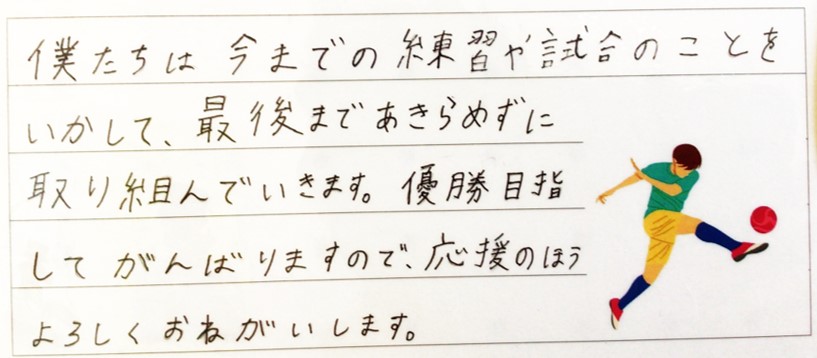 僕たちは今までの練習や試合のことを
いかして、最後まであきらめずに
取り組んでいきます。優勝目指
してがんばりますので、応援のほう
よろしくおねがいします。